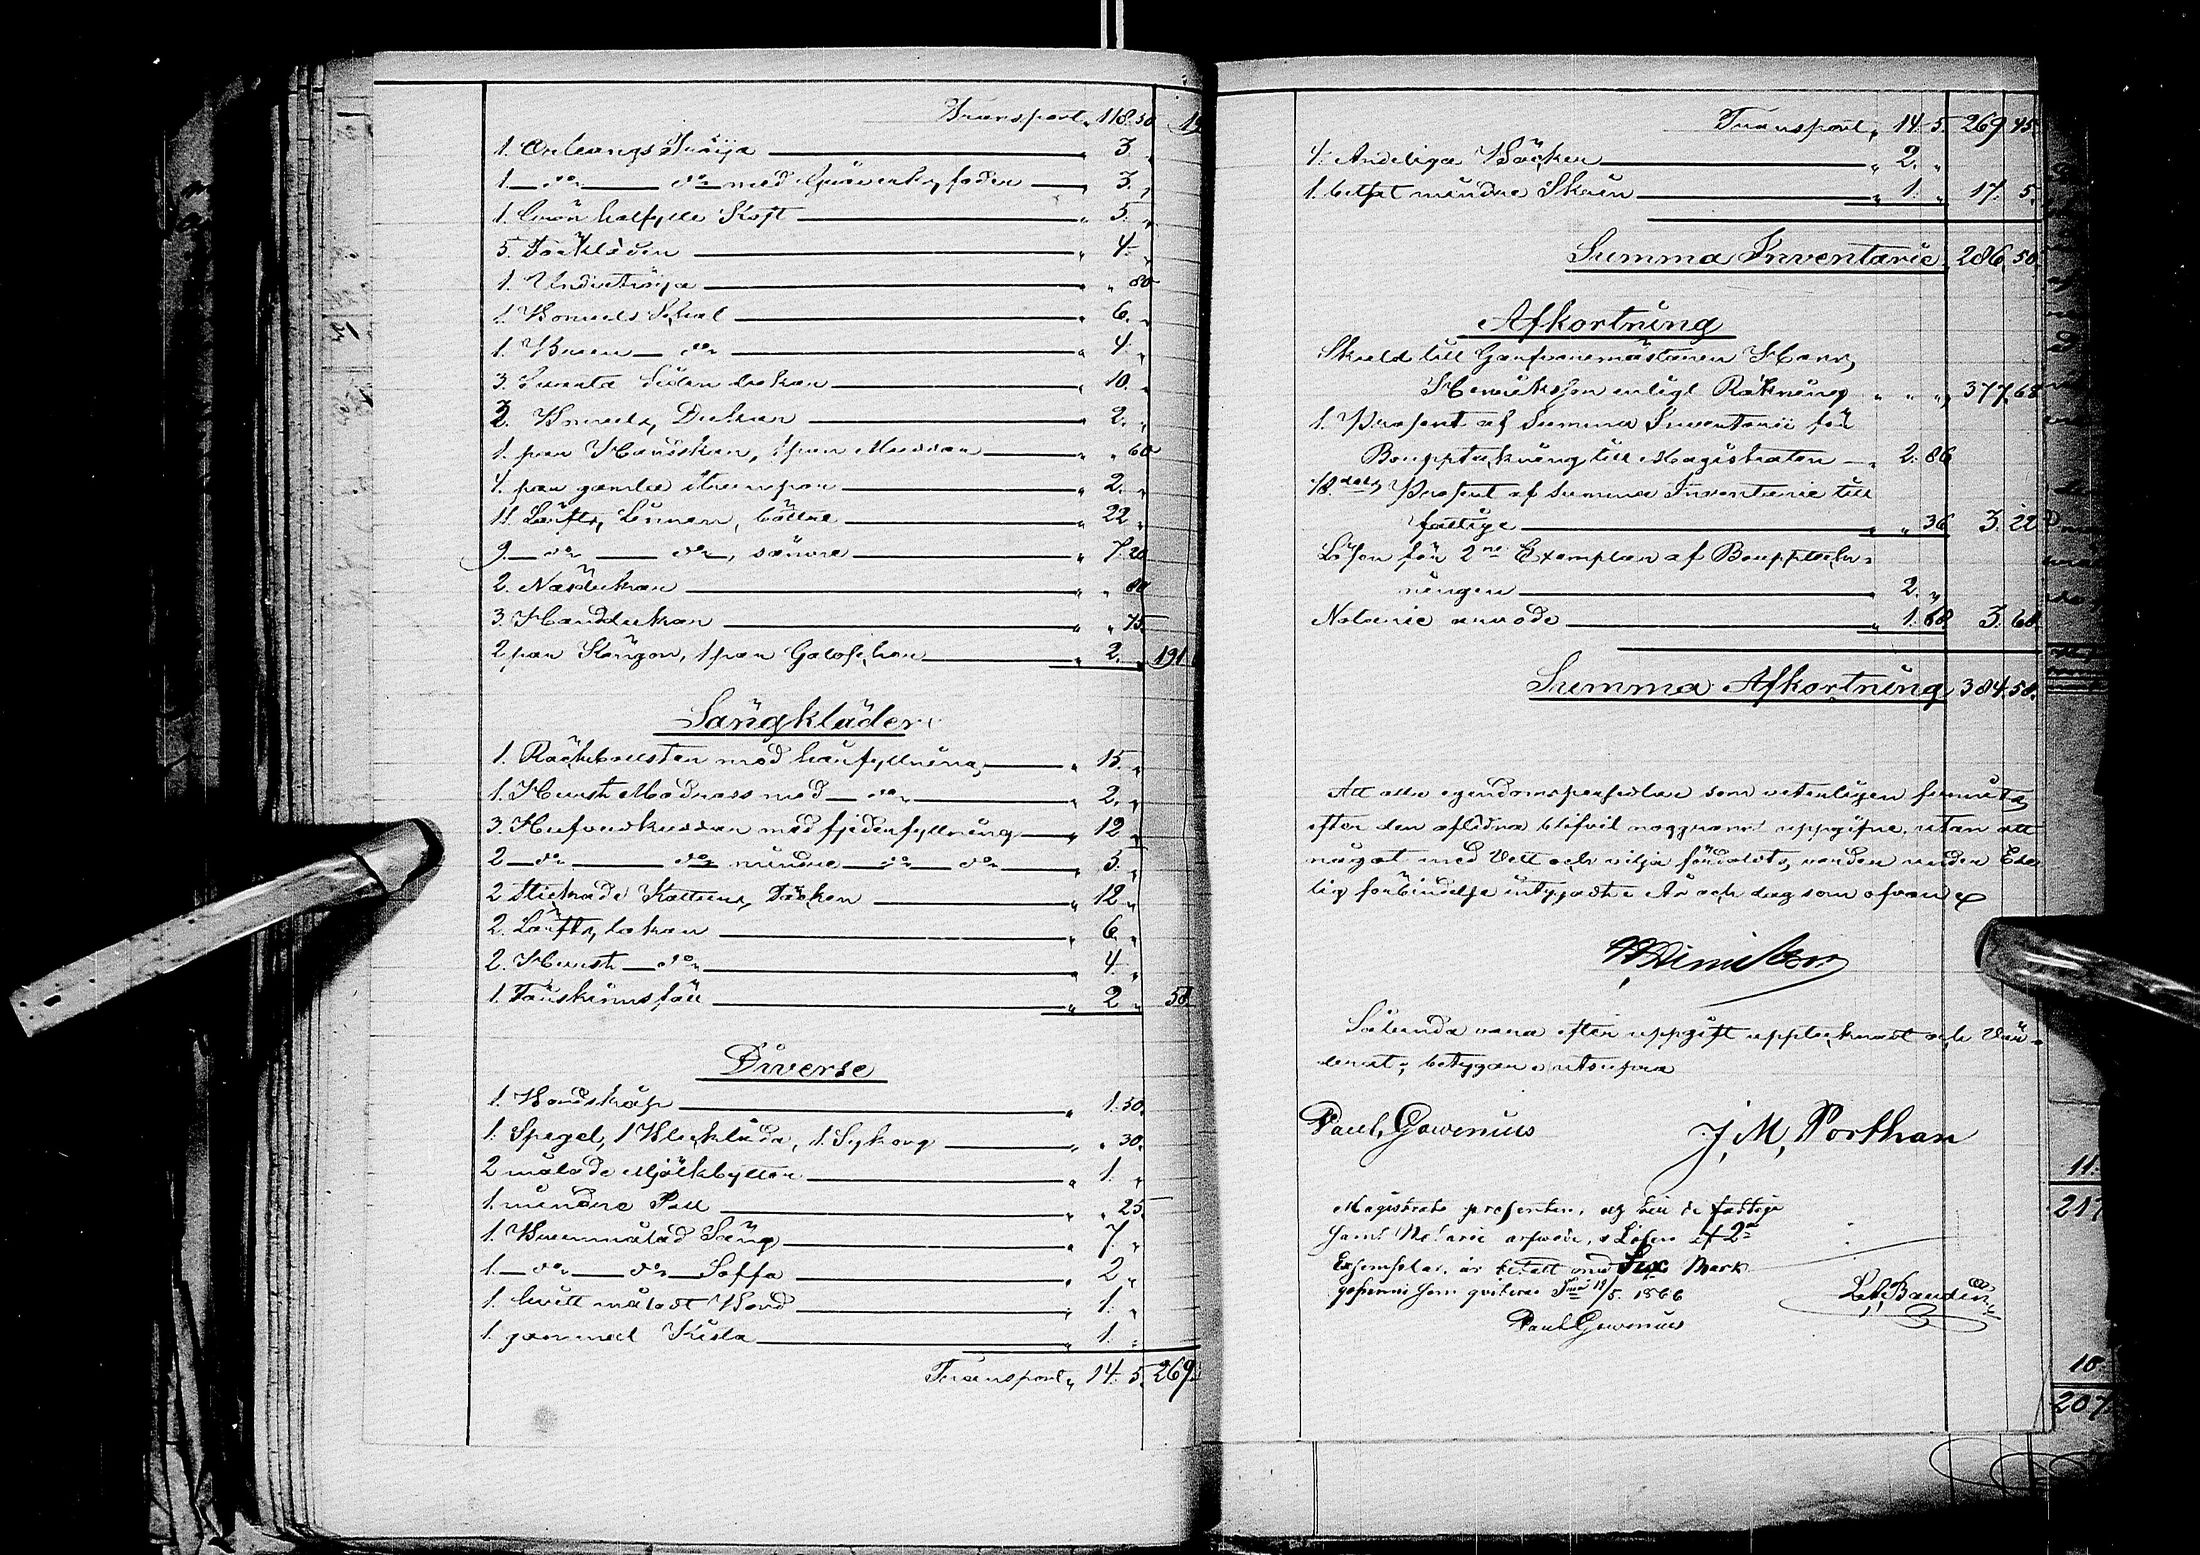 Transport „ 118. 50 19
1. Orleangs Tröija „ 3. „
1. do do med Gråverks foder „ 3. „
1. Grön halfylle Koft „ 5. „
5. Förkläden „ 4. „
1. Undertröija „ „ 80
1. Bomuls Schal „ 6. „
1. Brun do „ 4. „
3. Svarta Siden dukar „ 10. „
2. Bomuls Dukar „ 2. „
1. par Handskar, 1 par „ „ 60
4. par gamla strumpor „ 2. „
11. Lärfts Linnen, bättre „ 22 „
9. do do, sämre „ 7. 20
2. Näsdukar „ „ 80
3. Handdukar „ „ 75.
2 par Kängor, 1 par Galoscher „ 2. „ 191
Sängkläder
1. Räckbolster med hårfyllning „ 15. „
1. Hursti Madrass med do „ 2. „
3. Hufvudkuddar med fjederfyllning „ 12 „
2 do do mindre do do „ 5. „
2 stickade Kattuns Täcken „ 12 „
2. Lärfts lakan „ 6. „
2. Hursti do „ 4. „
1. Fårskinnsfäll „ 2 „ 58.
Diverse
1. Bordskåp „ 1. 50.
1. Spegel, 1 Blecklåda, 1. Sykorg „ „ 30.
2 målade Mjölkbyttor „ 1. „
1. mindre Pall „ „ 25.
1. Brunmålad Säng „ 7. „
1. do do Soffa „ 2 „
1. hvitt måladt Bord „ 1. „
1. gammal Kista „ 1. „
Transport „ 14. 5. 269.
Transport „ 14. 5. 269. 45.
4. Andeliga Böcker „ 2. „
1. betsat mindre Skrin „ 1. „ 17. 5.
Summa Inventarie 286. 50.
Afkortning
Skuld till Garfvaremästaren Herr
Henriksson enligt Räkning „ „ „ 377. 68
1. Procent af Summa Inventarii för
Bouppteckning till Magistraten „ 2. 86
1/8 dels Procent af Summa Inventarie till
fattige „ „ 36 3. 22
Lösen för 2ne Exemplar af Bouppteck-
ningen „ 2. „
Notarie arvode „ 1. 68. 3. 68.
Summa Afkortning 384. 58.
Att alla egendomspersedlar som veterligen funnits
efter den aflidna blifvit noggrant uppgifne, utan att
något med Vett och vilja fördolts, varder under Ed
lig förbindelse intygadt. År och dag som ofvan
Sålunda vara efter uppgift upptecknadt och Vär-
derat; betygar, utsupra
Paul Gowenius J. M. Porthan
Magistrats procenten, och till de fattige
samt Notarie arfvode, o Lösen af 2ne
Exemplar, är betalt med Sex Mark
Smr 19/5. 1866
Paul Gowenius
11.
217
10.
207